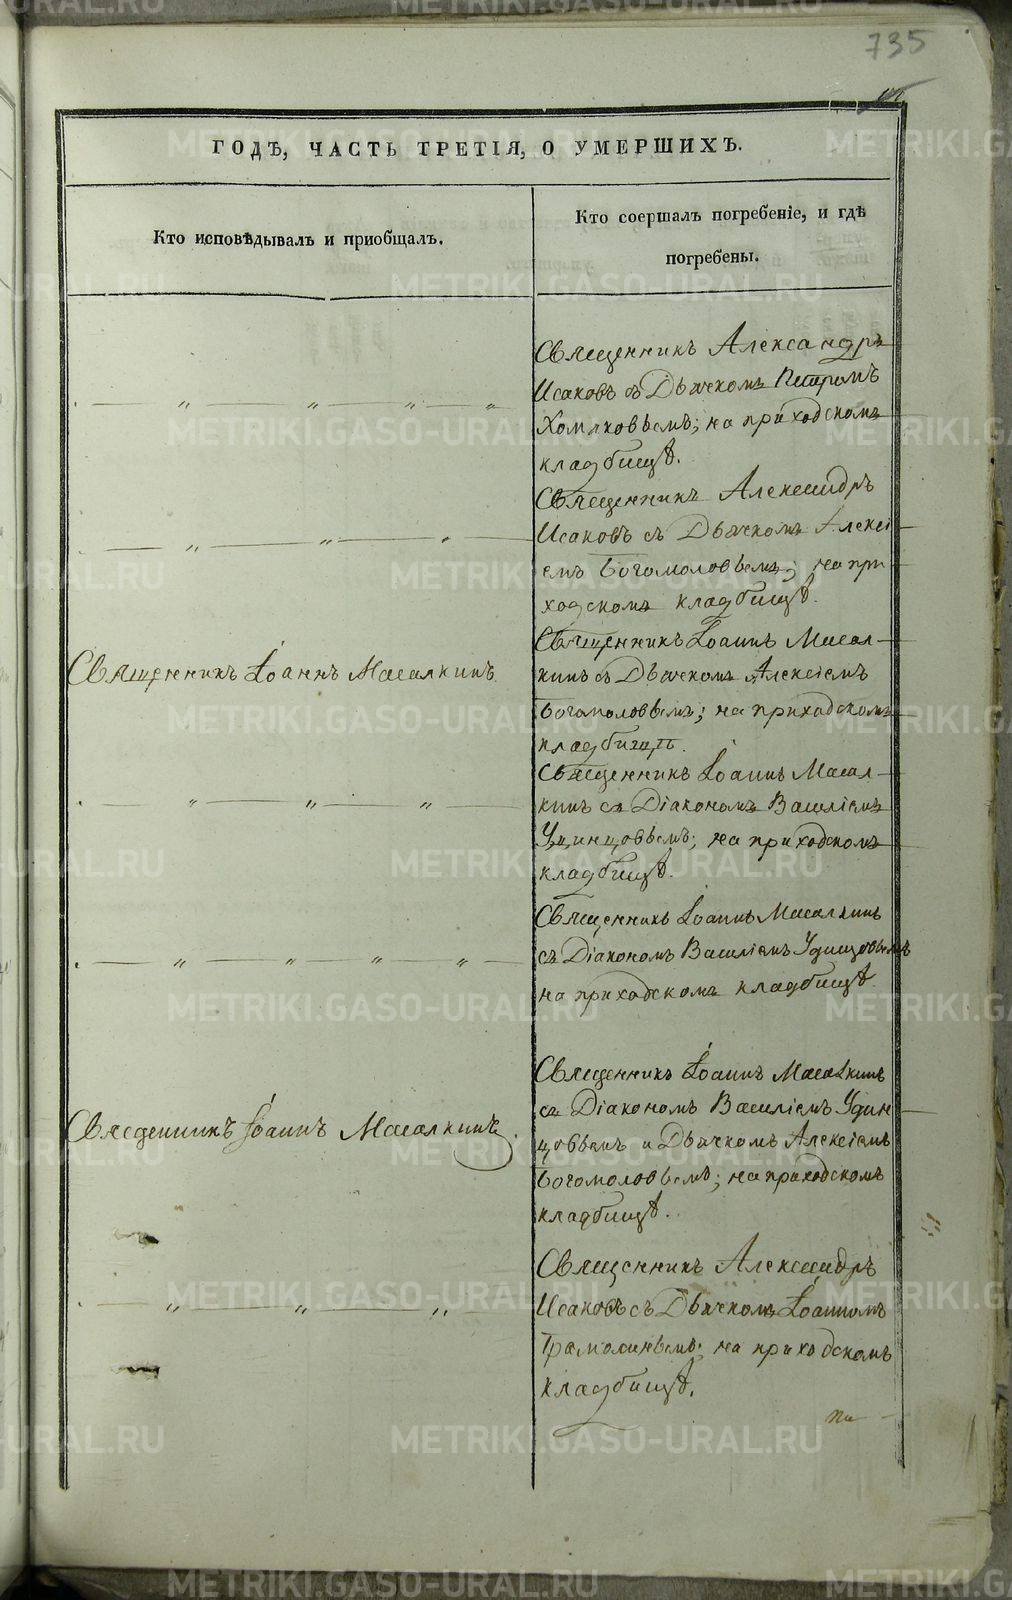 735
ГОДѢ, ЧАСТЬ ТРЕТІЯ, О УМЕРШИХЪ.
Кто исповѣдывалъ и приобщалъ.
Кто соершалъ погребеніе, и гдѣ
погребены.
Священникъ Александръ
Исаковъ съ Дьячкомъ Петромъ
Хомяковымъ; на приходскомъ
кладбищѣ.
Священникъ Александръ
Исаковъ съ Дьячкомъ Алексі
емъ Богомоловымъ; на при
ходскомъ кладбищѣ.
Священникъ Іоаннъ Масалкинъ
Священникъ Іоаннъ Масал
кинъ съ Дьячкомъ Алексіемъ
Богомоловымъ; на приходскомъ
кладбищѣ.
Священникъ Іоаннъ Масал
кинъ съ Діакономъ Василіемъ
Удинцовымъ; на приходскомъ
кладбищѣ.
Священникъ Іоаннъ Масалкинъ
съ Діакономъ Василіемъ Удинцовымъ
на приходскомъ кладбищѣ.
Священникъ Іоаннъ Масалкинъ.
Священникъ Іоаннъ Масалкинъ
съ Діакономъ Василіемъ Удин
цовымъ и Дьячкомъ Алексіемъ
Богомоловымъ; на приходскомъ
кладбищѣ.
Священникъ Александръ
Исаковъ съ Дьячкомъ Іоанномъ
на приходскомъ
кладбищѣ.
METRIKI.GASO-URAL.RU